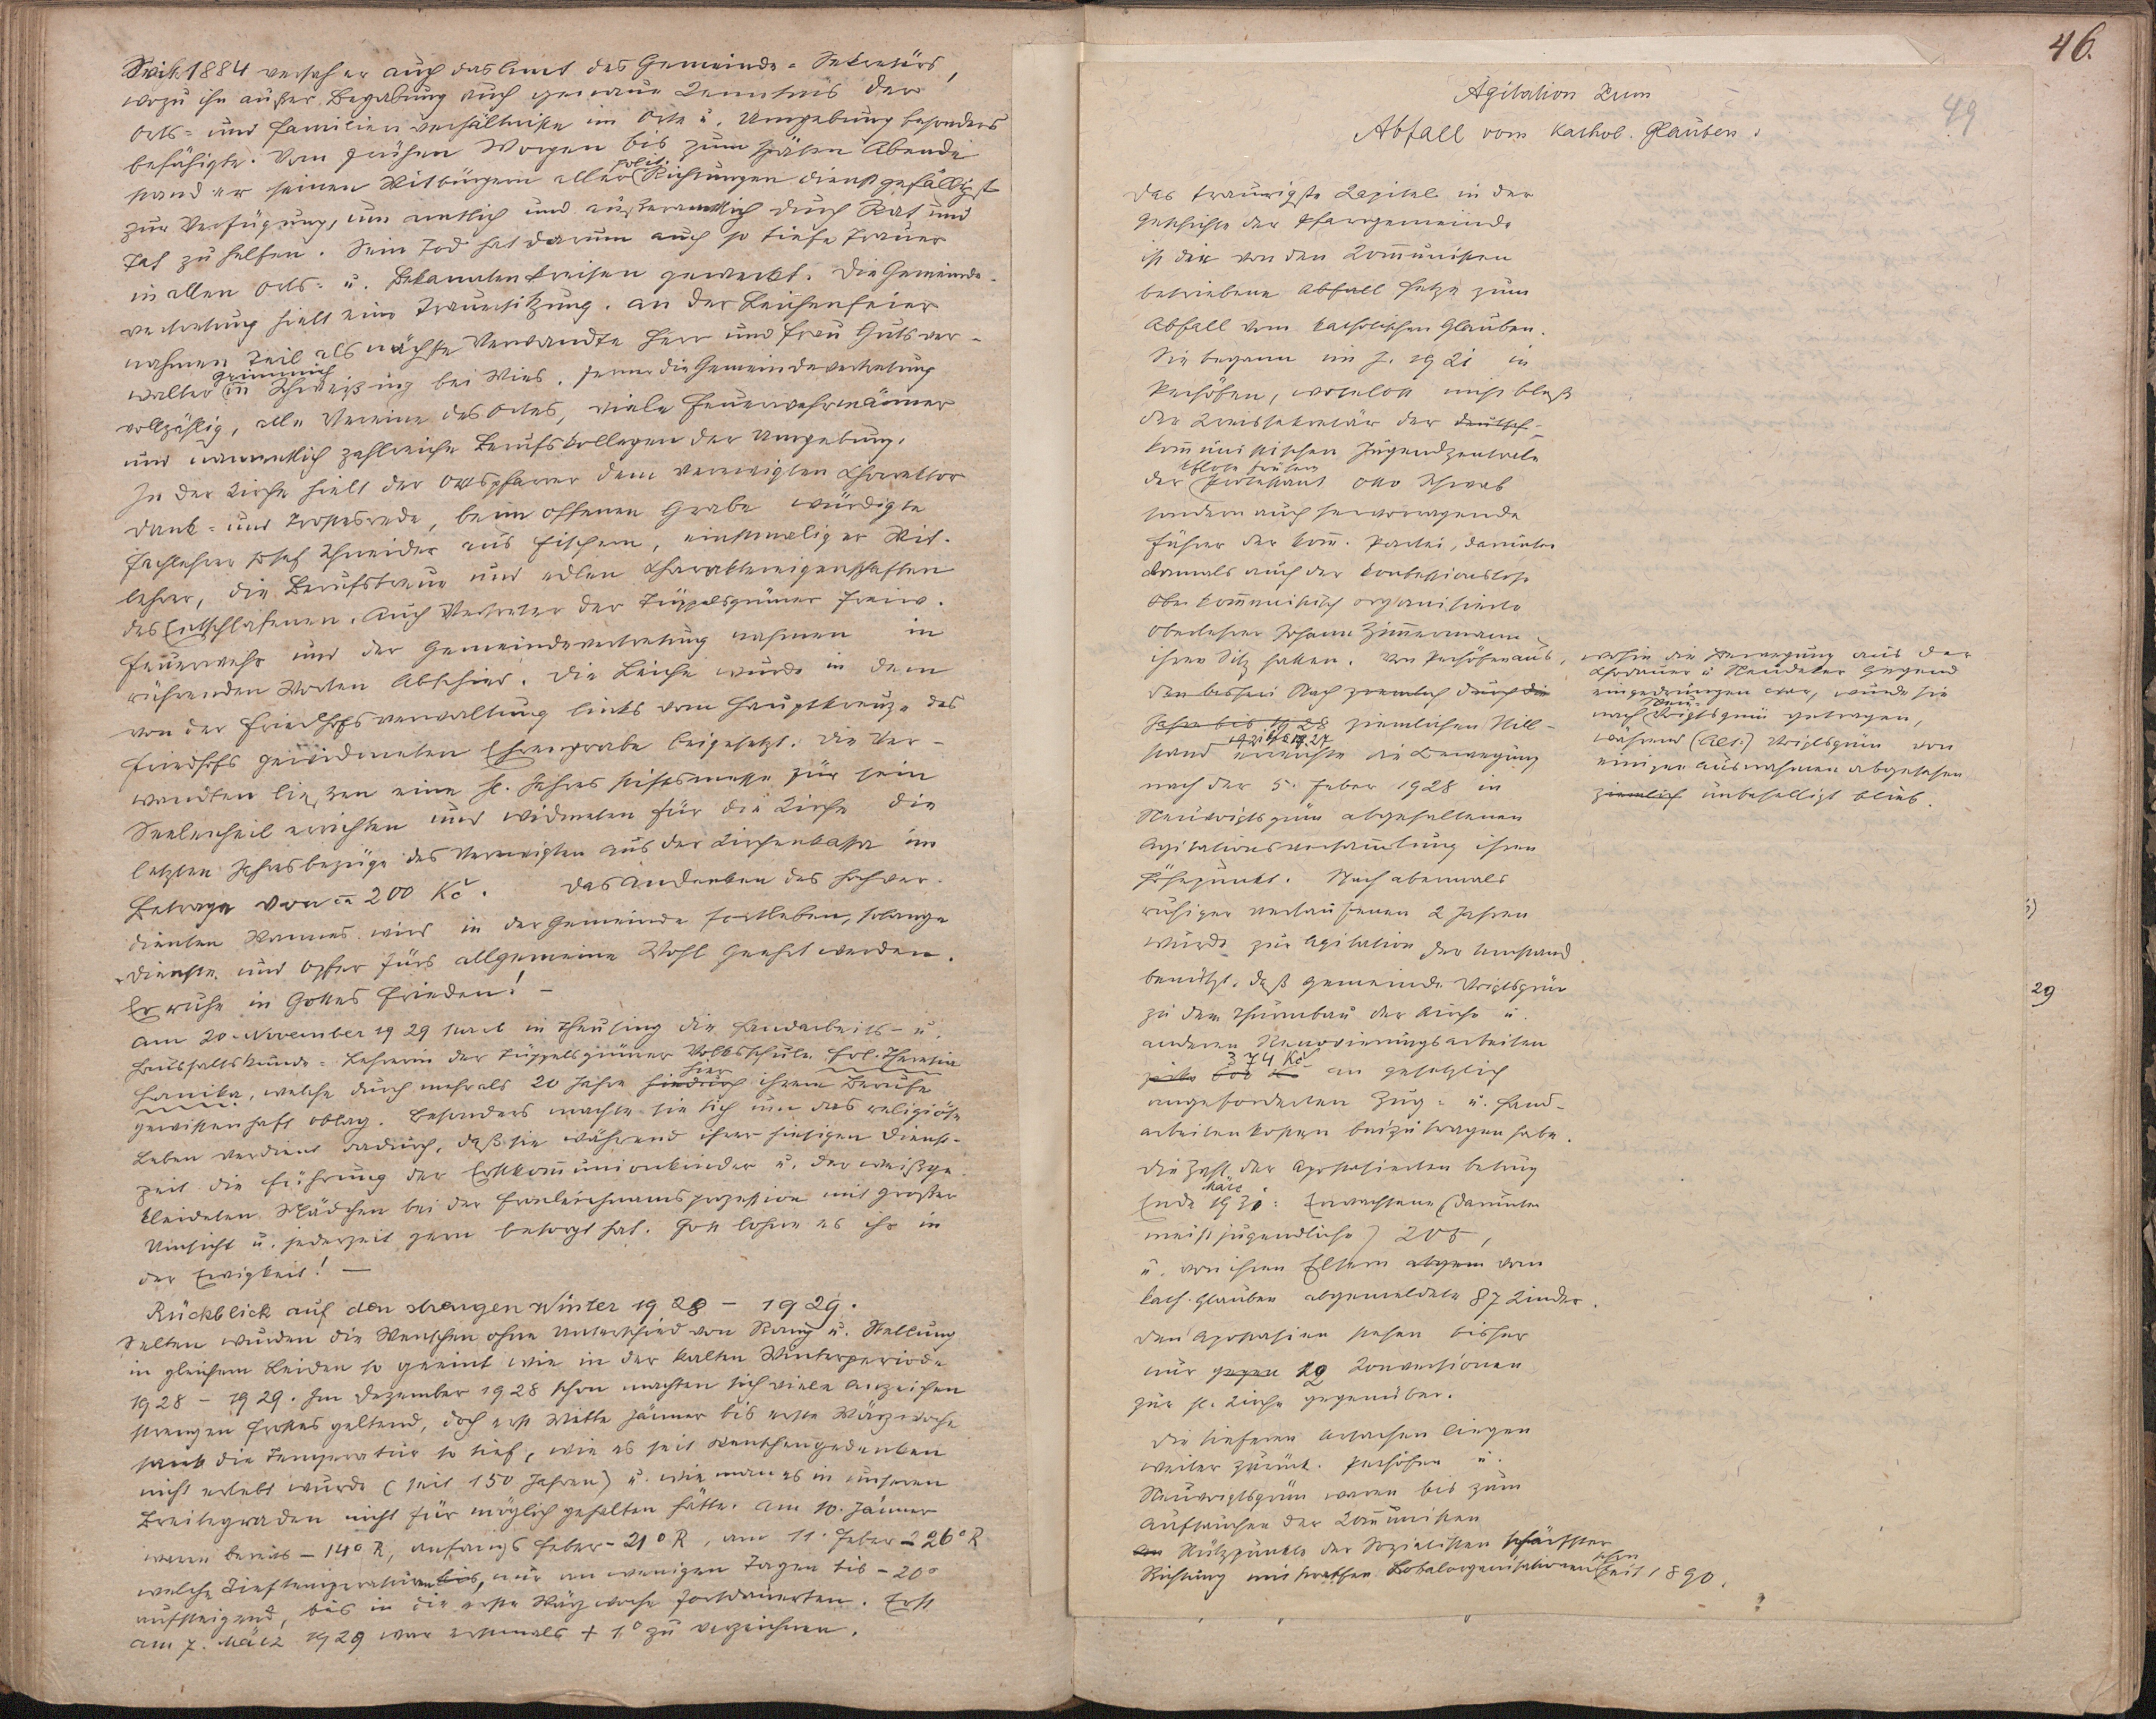 Seit 1884 versah er auch das Amt des Gemeinde-Sekretärs,
wozu ihn außer Begabung auch genaue Kenntnis der
Orts- und Familienverhältnisse im Orte u. Umgebung besonders
befähigte. Vom frühen Morgen bis zum späten Abende
stand er seinen Mitbürgern aller polit. Richtungen dienstgefälligst
zur Verfügung, um amtlich und außeramtlich durch Rat und
Tat zu helfen. Sein Tod hat darum auch so tiefe Trauer
in allen Orts- u. Bekanntenkreisen geweckt. Die Gemeinde-
vertretung hielt eine Trauersitzung. An der Leichenfeier
nahmen teil als nächste Verwandte Herr und Frau Gutsver-
walter Grimmich in Schweißing bei Mies, ferner die Gemeindevertretung
vollzählig, alle Vereine des Ortes, viele Feuerwehrmänner
und namentlich zahlreiche Berufskollegen der Umgebung.
In der Kirche hielt der Ortspfarrer dem verewigten Chorrektor
Dank- und Trostesrede, beim offenen Grabe würdigte
Fachlehrer Josef Schneider aus Fischern, einstmaliger Mit-
lehrer, die Berufstreue und edlen Charaktereigenschaften
des Entschlafenen. Auch Vertreter der Tüppelsgrüner Freiw.
Feuerwehr und der Gemeindevertretung nahmen in
rührenden Worten Abschied. Die Leiche wurde in dem
von der Friedhofsverwaltung links vom Hauptkreuze des
Friedhofs gewidmeten Ehrengrabe beigesetzt. Die Ver-
wandten ließen eine hl. Jahresstiftsmesse für sein
Seelenheil errichten und widmeten für die Kirche die
letzten Jahresbezüge des Verewigten aus der Kirchenkassa im
Betrage von ca 200 Kč. Das Andenken des hochver-
dienten Mannes wird in der Gemeinde fortleben, solange
Dienste und Opfer fürs allgemeine Wohl geehrt werden.
Er ruhe in Gottes Frieden! –
Am 20. November 1929 starb in Theusing die Handarbeits- u.
Haushaltskunde-Lehrerin der Tüppelsgrüner Volksschule Frl. Theresia
Hanika, welche durch mehr als 20 Jahre hier ihrem Berufe
gewissenhaft oblag. Besonders machte sie sich um das religiöse
Leben verdient dadurch, daß sie während ihrer hiesigen Dienst-
zeit die Führung der Erstkommunionkinder u. der weißge-
kleideten Mädchen bei der Fronleichnamsprozession mit großer
Umsicht u. jederzeit gern besorgt hat. Gott lohne es ihr in
der Ewigkeit! –
Rückblick auf den strengen Winter 1928 – 1929.
Selten wurden die Menschen ohne Unterschied von Rang u. Stellung
in gleichem Leiden so geeint wie in der kalten Winterperiode
1928 – 1929. Im Dezember 1928 schon machten sich viele Anzeichen
strengen Frostes geltend, doch erst Mitte Jänner bis erste Märzwoche
sank die Temperatur so tief, wie es seit Menschengedenken
nicht erlebt wurde (seit 150 Jahren) u. wie man es in unseren
Breitegraden nicht für möglich gehalten hätte. Am 10. Jänner
waren bereits – 14° R, anfangs Feber – 21° R, am 11. Feber – 26° R
welche Tieftemperaturen bis, nur an wenigen Tagen bis – 20°
aufsteigend, bis in die erste Märzwoche fortdauerten. Erst
am 7. März 1929 war erstmals + 1° zu verzeichnen.
46.
49
Agitation zum
Abfall vom kathol. Glauben.
Das traurigste Kapitel in der
Geschichte der Pfarrgemeinde
ist die von den Kommunisten
betriebene Abfall Hetze zum
Abfall vom katholischen Glauben.
Sie begann im J. 1921 in
Pechöfen, woselbst nicht bloß
der Kreissekretär der deutsch-
kommunistischen Jugendzentrale
der frühere Protestant Otto Schwab
sondern auch hervorragende
Führer der kom. Partei, darunter
damals auch der konfessionslose
aber kommunistisch organisierte
Oberlehrer Johann Zimmermann
ihren Sitz hatten. Von Pechöfen aus,
Nach ziemlich durch die
Jahre bis 1928 ziemlichen Still-
stand 1921 bis 1927 erreichte die Bewegung
nach der 5. Feber 1928 in
Neuvoigtsgrün abgehaltenen
Agitationsversammlung ihren
Höhepunkt. Nach abermals
ruhiger verlaufenen 2 Jahren
wurde zur Agitation der Umstand
benützt, daß Gemeinde Voigtsgrün
zu dem Thurmbau der Kirche u.
anderen Renovierungsarbeiten
374 Kč an gesetzlich
angeforderten Zug- u. Hand-
arbeitenkosten beizutragen habe.
Die Zahl der Apostasierten betrug
Ende März 1931: Erwachsene (darunter
meist jugendliche) 205,
u. von ihren Eltern vom
kath. Glauben abgemeldete 87 Kinder.
Den Apostasien stehen bisher
nur gegen 19 Konversionen
zur hl. Kirche gegenüber.
Die tieferen Ursachen liegen
weiter zurück. Pechöfen u.
Neuvoigtsgrün waren bis zum
Auftauchen der Kommunisten
Stützpunkte der Sozialisten schärfster
Richtung mit straffen Lokalorganisationen schon seit 1890.
wohin die Bewegung aus der
Chodauer u. Neudeker Gegend
eingedrungen war, wurde sie
nach Neu-Voigtsgrün getragen,
während (Alt-) Voigtsgrün von
einigen Ausnahmen abgesehen
ziemlich unbehelligt blieb.
29